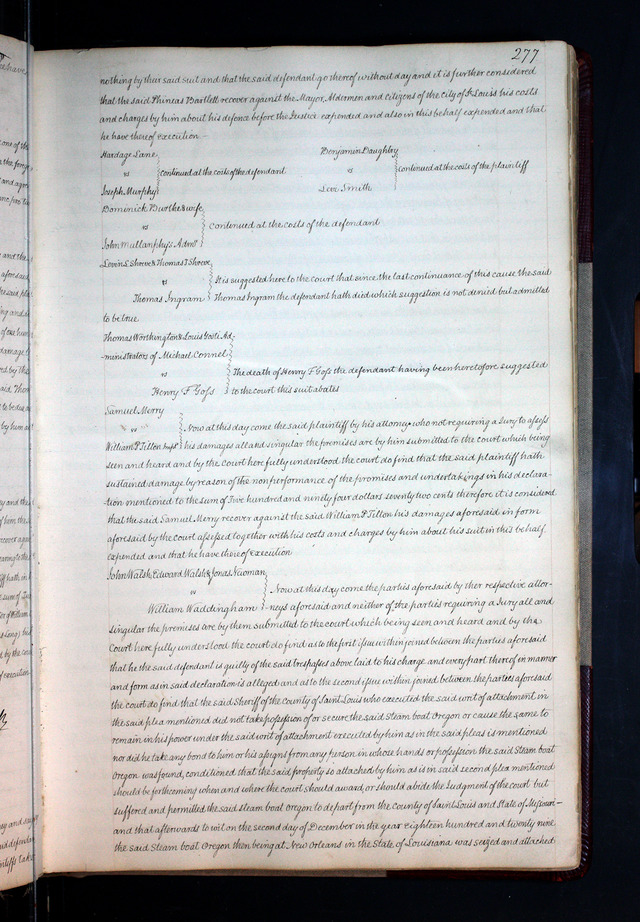 277
nothing by their said suit and that the said defendant go thereof without day and it is further considered
that the said Phineas Bartlett recover against the Mayor, Aldermen and Citizens of the City of St Louis his costs
and charges by him about his defence before the Justice expended and also in this behalf expended and that
he have thereof execution —
Hardage Lane
vs continued at the costs of the defendant
Joseph Murphy
Benjamin Daughlry
vs continued at the costs of the plaintiff
Levi Smith
Dominick Burthe & wife
vs continued at the costs of the defendant
John Mullanphy's Admr
Levin L Shreve & Thomas T Shreve
vs It is suggested here to the court that since the last continuance of this cause the said
Thomas Ingram Thomas Ingram the defendant hath died which suggestion is not denied but admitted
to be true
Thomas Worthington & Louis Ad-
-ministrators of Michael Connel
vs The death of Henry F Goss the defendant having been heretofore suggested
Henry F Goss to the court this suit abates
Samuel Merry
" vs " Now at this day come the said plaintiff by his attorney who not requiring a Jury to assess
William P Tillon his damages all and singular the premises are by him submitted to the court which being
seen and heard and by the Court here fully understood the court do find that the said plaintiff hath
sustained damage by reason of the nonperformance of the promises and undertakings in his declara-
-tion mentioned to the sum of Five hundred and ninety four dollars seventy two cents therefore it is considered
that the said Samuel Merry recover against the said William P Tillon his damages aforesaid in form
aforesaid by the court assessed together with his costs and charges by him about his suit in this behalf
expended and that he have thereof execution
John Walsh, Edward Walsh & Jonas Newman
vs Now at this day come the parties aforesaid by their respective attor-
William Waddingham neys aforesaid and neither of the parties requiring a Jury all and
singular the premises are by them submitted to the court which being seen and heard and by the
Court here fully understood the court do find as to the first issue within joined between the parties aforesaid
that he the said defendant is guilty of the said trespasses above laid to his charge and every part thereof in manner
and form as in said declaration is alleged and as to the second issue within joined between the parties aforesaid
the court do find that the said Sheriff of the County of Saint Louis who executed the said writ of attachment in
the said plea mentioned did not take possession of or secure the said Steam boat Oregon or cause the same to
remain in his power under the said writ of attachment executed by him as in the said pleas is mentioned
nor did he take any bond to him or his assigns from any person in whose hands or possession the said Steam boat
Oregon was found, conditioned that the said property so attached by him as is in said second plea mentioned
should be forthcoming when and where the court should award, or should abide the Judgment of the court but
suffered and permitted the said Steam boat Oregon to depart from the County of Saint Louis and State of Missouri —
and that afterwards to wit on the second day of December in the year Eighteen hundred and twenty nine
the said Steam boat Oregon then being at New Orleans in the State of Louisiana was seized and attached